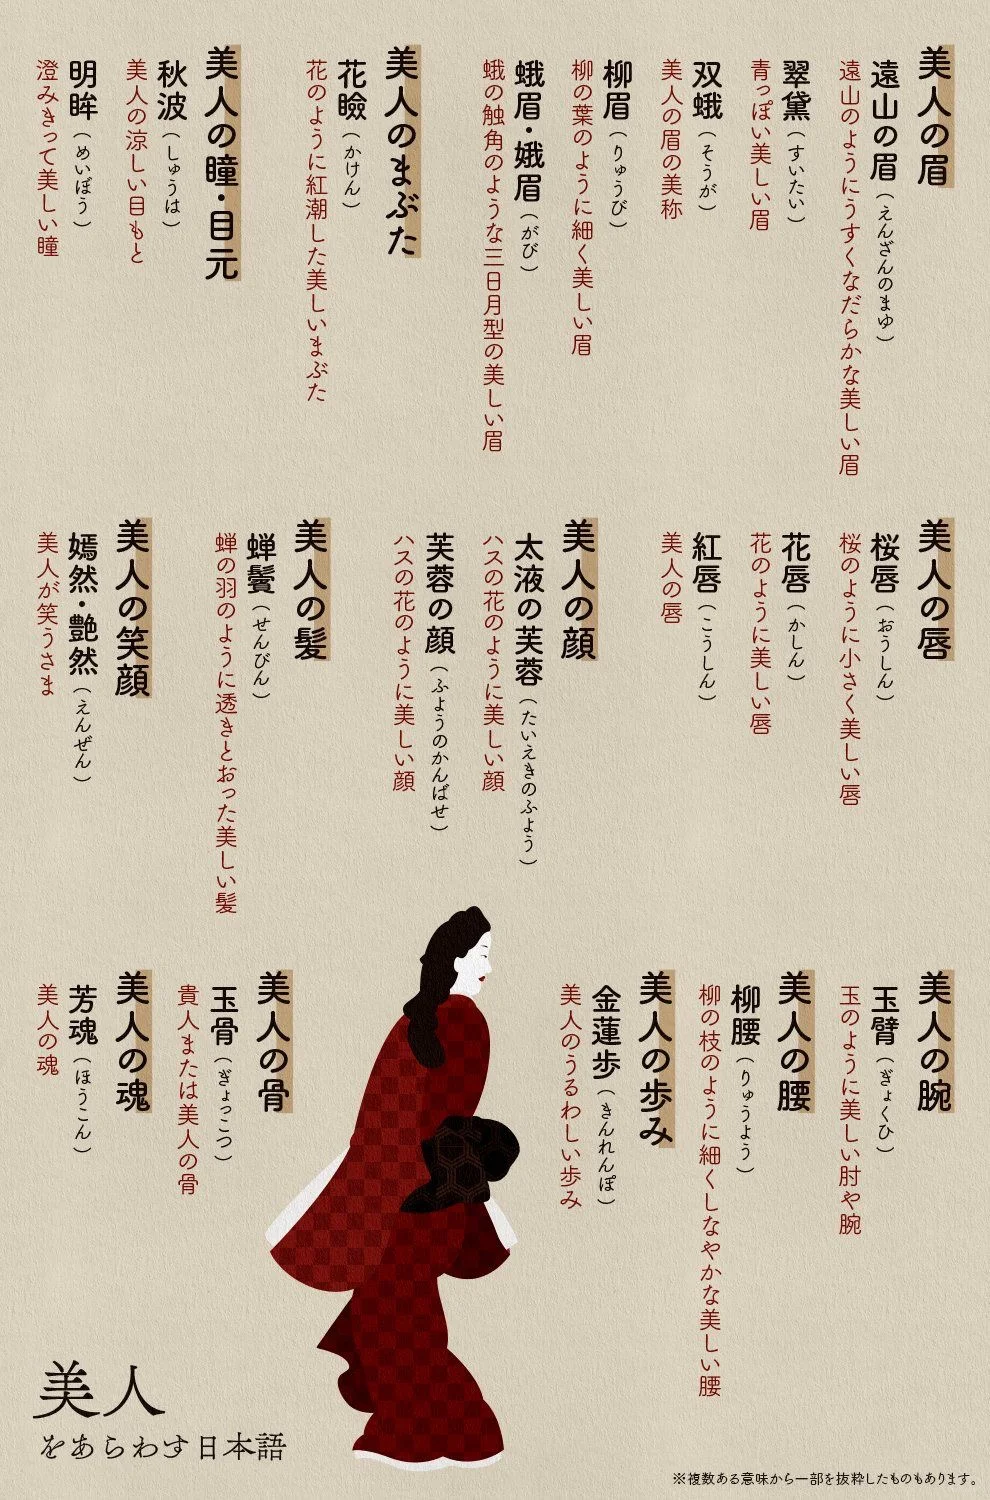 美人の眉
遠山の眉（えんざんのまゆ）
遠山のようにうすくなだらかな美しい眉
翠黛（すいたい）
青っぽい美しい眉
双蛾（そうが）
美人の眉の美称
柳眉（りゅうび）
柳の葉のように細く美しい眉
蛾眉・娥眉（がび）
蛾の触角のような三日月型の美しい眉
美人のまぶた
花瞼（かけん）
花のように紅潮した美しいまぶた
美人の瞳・目元
秋波（しゅうは）
美人の涼しい目もと
明眸（めいぼう）
澄みきって美しい瞳
美人の唇
桜唇（おうしん）
桜のように小さく美しい唇
花唇（かしん）
花のように美しい唇
紅唇（こうしん）
美人の唇
美人の顔
太液の芙蓉（たいえきのふよう）
ハスの花のように美しい顔
芙蓉の顔（ふようのかんばせ）
ハスの花のように美しい顔
美人の髪
蝉鬢（せんびん）
蝉の羽のように透きとおった美しい髪
美人の笑顔
嫣然・艶然（えんぜん）
美人が笑うさま
美人の腕
玉臂（ぎょくひ）
玉のように美しい肘や腕
美人の腰
柳腰（りゅうよう）
柳の枝のように細くしなやかな美しい腰
美人の歩み
金蓮歩（きんれんぽ）
美人のうるわしい歩み
美人の骨
玉骨（ぎょっこつ）
貴人または美人の骨
美人の魂
芳魂（ほうこん）
美人の魂
美人
をあらわす日本語
※複数ある意味から一部を抜粋したものもあります。